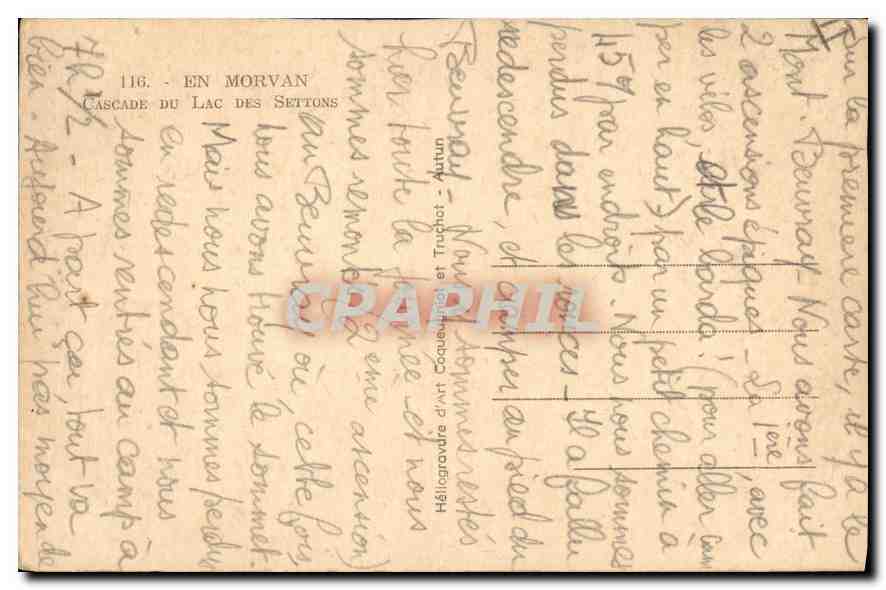 116. - EN MORVAN
CASCADE DU LAC DES SETTONS
Héliogravure d'Art Coqueugniot et Truchot - Autun
CPARHIL
II
Sur la première carte, il y a le
Mont. Beuvray - Nous avons fait
2 ascensions épiques - La 1ère, avec
les vélos, et le barda! (pour aller cam
per en haut) par un petit chemin à
45% par endroits. Nous nous sommes
perdus dans les ronces - Il a fallu
redescendre, et camper au pied du
Beuvray - Nous y sommes restés
hier toute la journée - et nous
sommes remontés (2ème ascension)
au Beuvray où, cette fois,
nous avons trouvé le sommet -
Mais nous nous sommes perdus
en redescendant et nous
sommes rentrés au camp à
7h 1/2 - A part ça, tout va
bien - Aujourd'hui pas moyen de